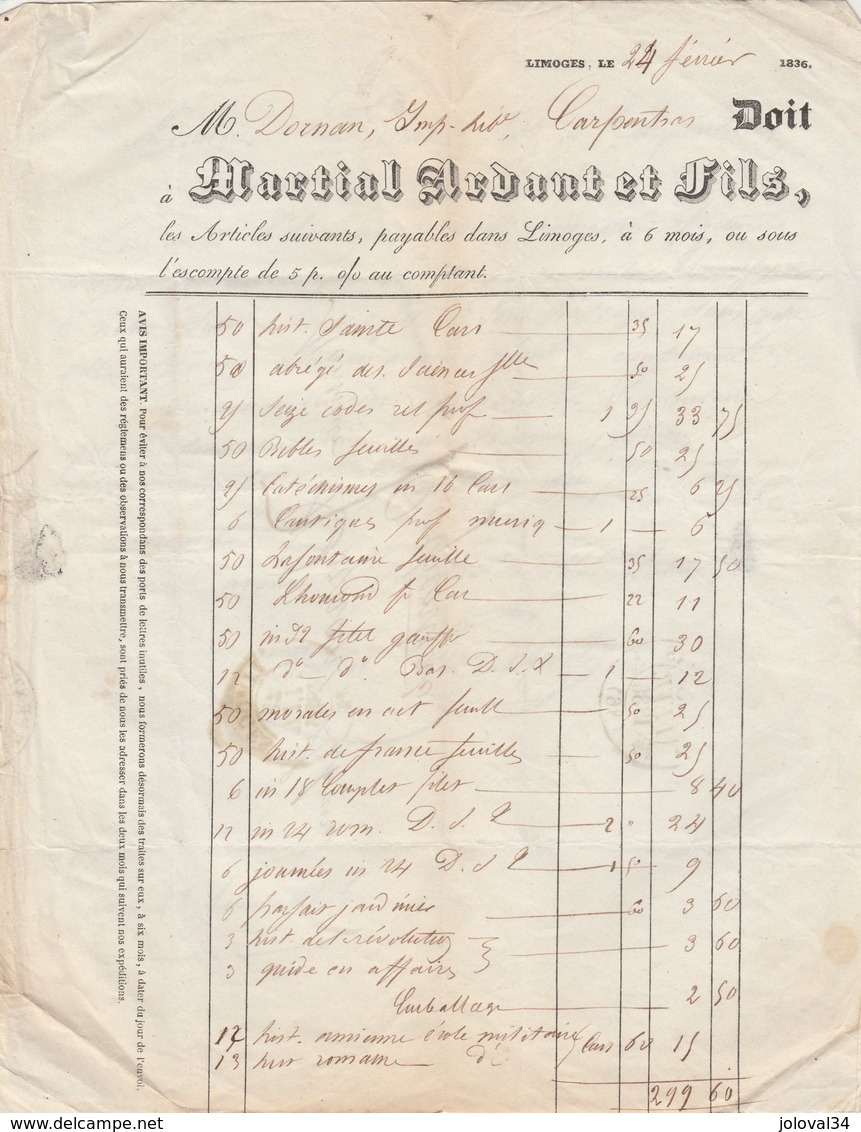 LIMOGES, LE 24 février 1836.
M. Dornan, Imp-lib, Carpentras Doit
à Martial Ardant et Fils,
les Articles suivants, payables dans Limoges, à 6 mois, ou sous
l'escompte de 5 p. o/o au comptant.
50 hist. Sainte Cars 35 17
50 abrégé des Sciences 50 25
25 Seize codes rel 1 35 33 75
50 Bibles feuilles 50 25
25 Catéchismes in 16 Cars 25 6 25
6 Cantiques musiq 1 6
50 Lafontaine feuille 35 17 50
50 Lhomond Car 22 11
50 in 32 filet gauffr 60 30
12 do do Bas. D. S. 1 12
50 morales en act feuill 50 25
50 hist. de france feuilles 50 25
6 in 18 Couplet filet 8 40
12 in 24 rom. D. S. 2 " 24
6 journées in 24 D. S. 1 50 9
6 parfait jardinier 60 3 60
3 hist de la révolution
3 guide en affaires 3 60
Emballage 2 50
12 hist. ancienne école militaire
13 hist romaine do Cars 60 15
299 60
AVIS IMPORTANT. Pour éviter à nos correspondans des ports de lettres inutiles, nous formerons désormais des traites sur eux, à six mois, à dater du jour de l'envoi.
Ceux qui auraient des réglemens ou des observations à nous transmettre, sont priés de nous les adresser dans les deux mois qui suivent nos expéditions.
www.delcampe.net
joloval34